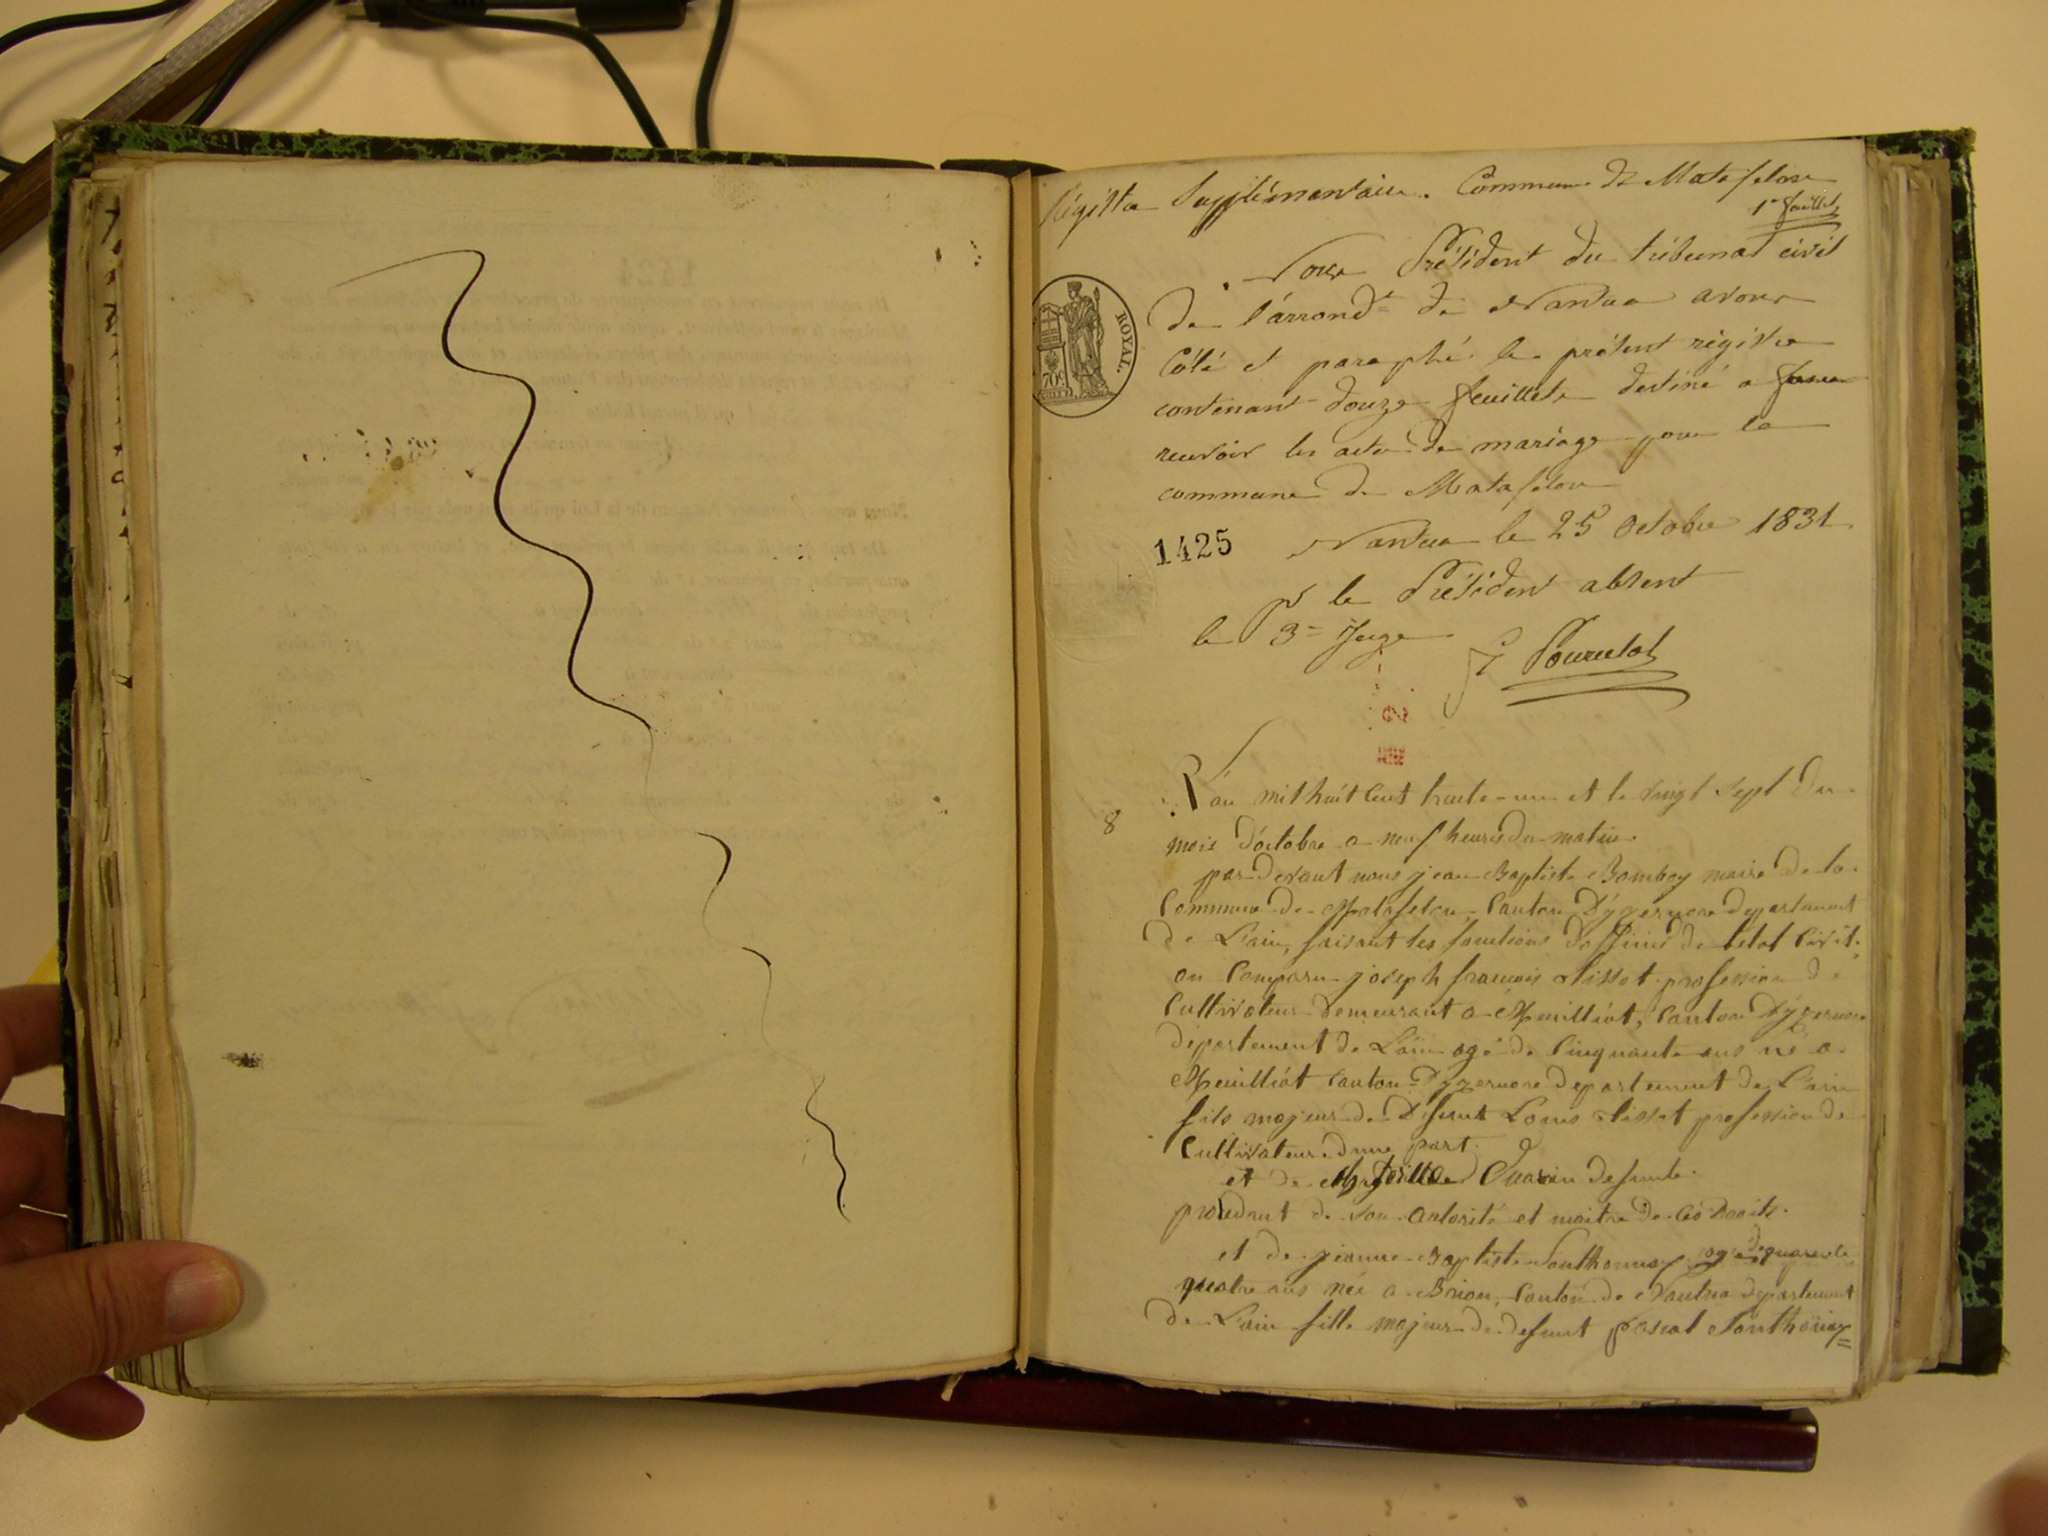 Régistre Supplémentaire. Commune de Matafelon
1er feuillet
Nous Président du tribunal civil
de l'arrondt de Nantua avons
Côté et paraphé le présent régistre
contenant douze feuillets destiné a
recevoir les actes de mariage pour la
commune de Matafelon
ROYAL.
70c
1425
Nantua le 25 Octobre 1831
pr le Président absent
le 3e Juge
8
L'an mil huit cent trente-un et le vingt sept du
mois d'octobre a neuf heures du matin.
par devant nous jean Baptiste Bomboy maire de la
Commune de Matafelon, Canton d'yzernore departement
de L'ain, faisant les fonctions d'officier de l'état Civil.
on Comparu joseph francois Tissot profession de
Cultivateur demeurant a Heuilliat, Canton d'yzernore
département de L'ain agé de Cinquante ans né a
Heuilliat Canton d'yzernore departement de L'ain
fils majeur de Défunt Louis Tissot profession de
Cultivateur d'une part.
et de défunte.
de son autorité et maitre de ces droits.
et de jeanne Baptiste Sonthonnax agé de quarente
quatre ans née a Brion, Canton de Nantua departement
de L'ain fille majeur de defunt pascal Sonthonax